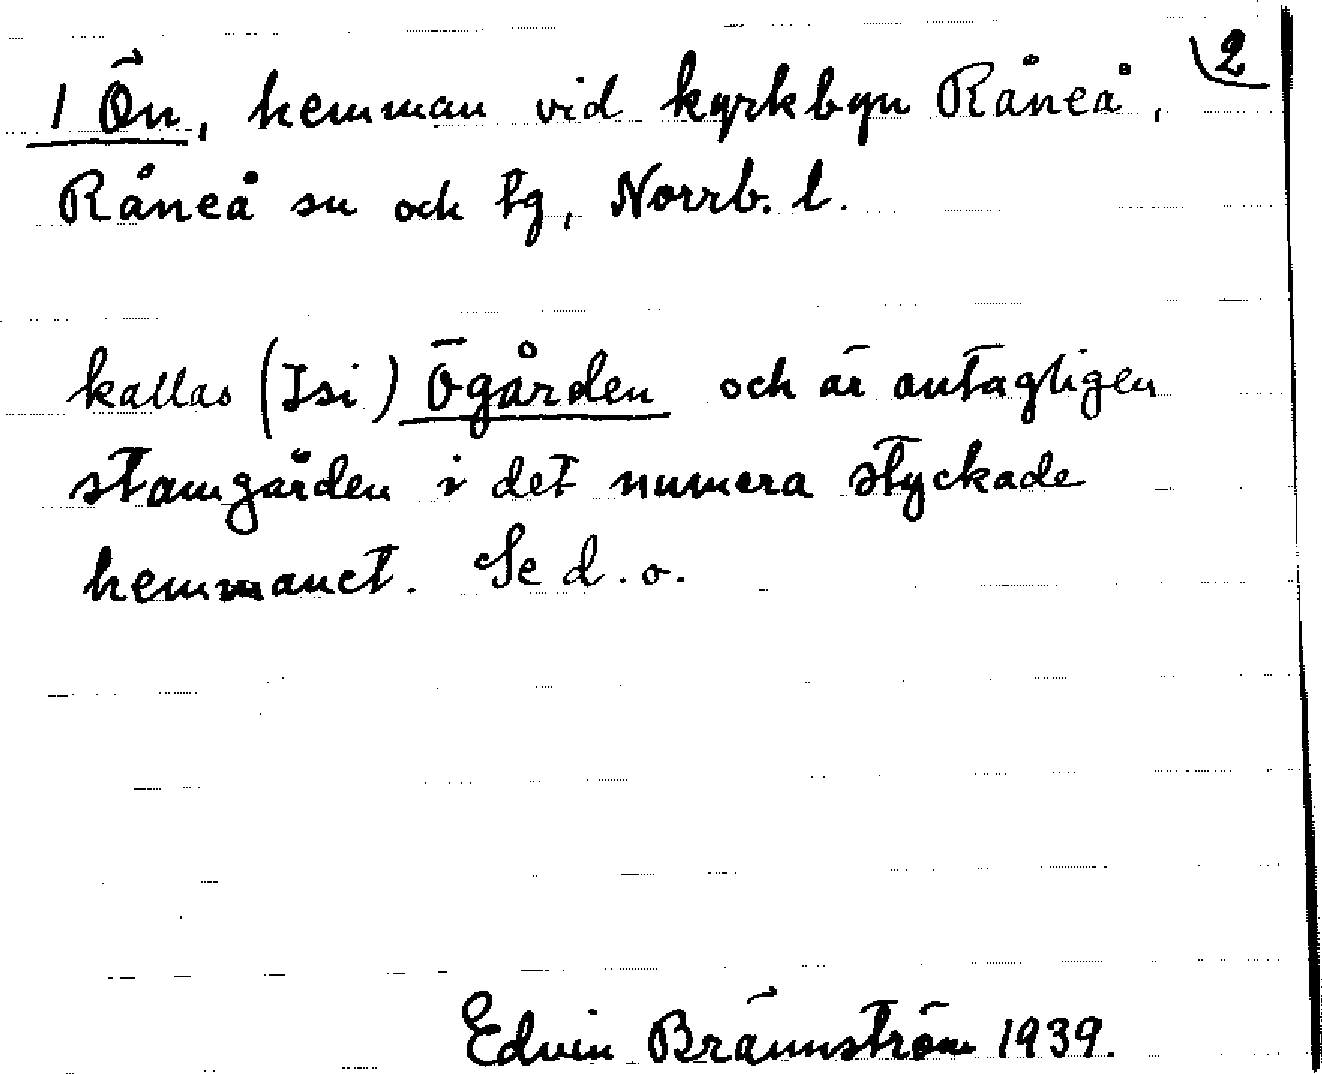 2
1 Ön, hemman vid kyrkbyn Råneå,
Råneå sn och tg, Norrb. l.
kallas (Isi) Ögården och är antagligen
stamgården i det numera styckade
hemmanet. Se d. o.
Edvin Brännström 1939.